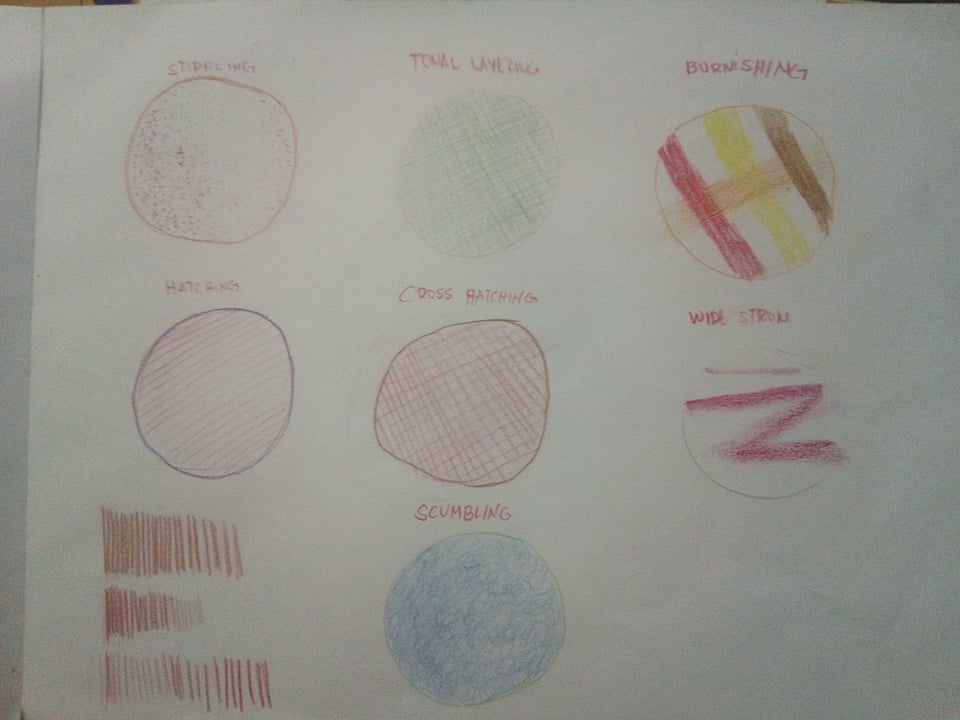 STIPPLING
TONAL LAYERING
BURNiSHING
HATCHING
CROSS HATCHING
WIDE STROK
SCUMBLING